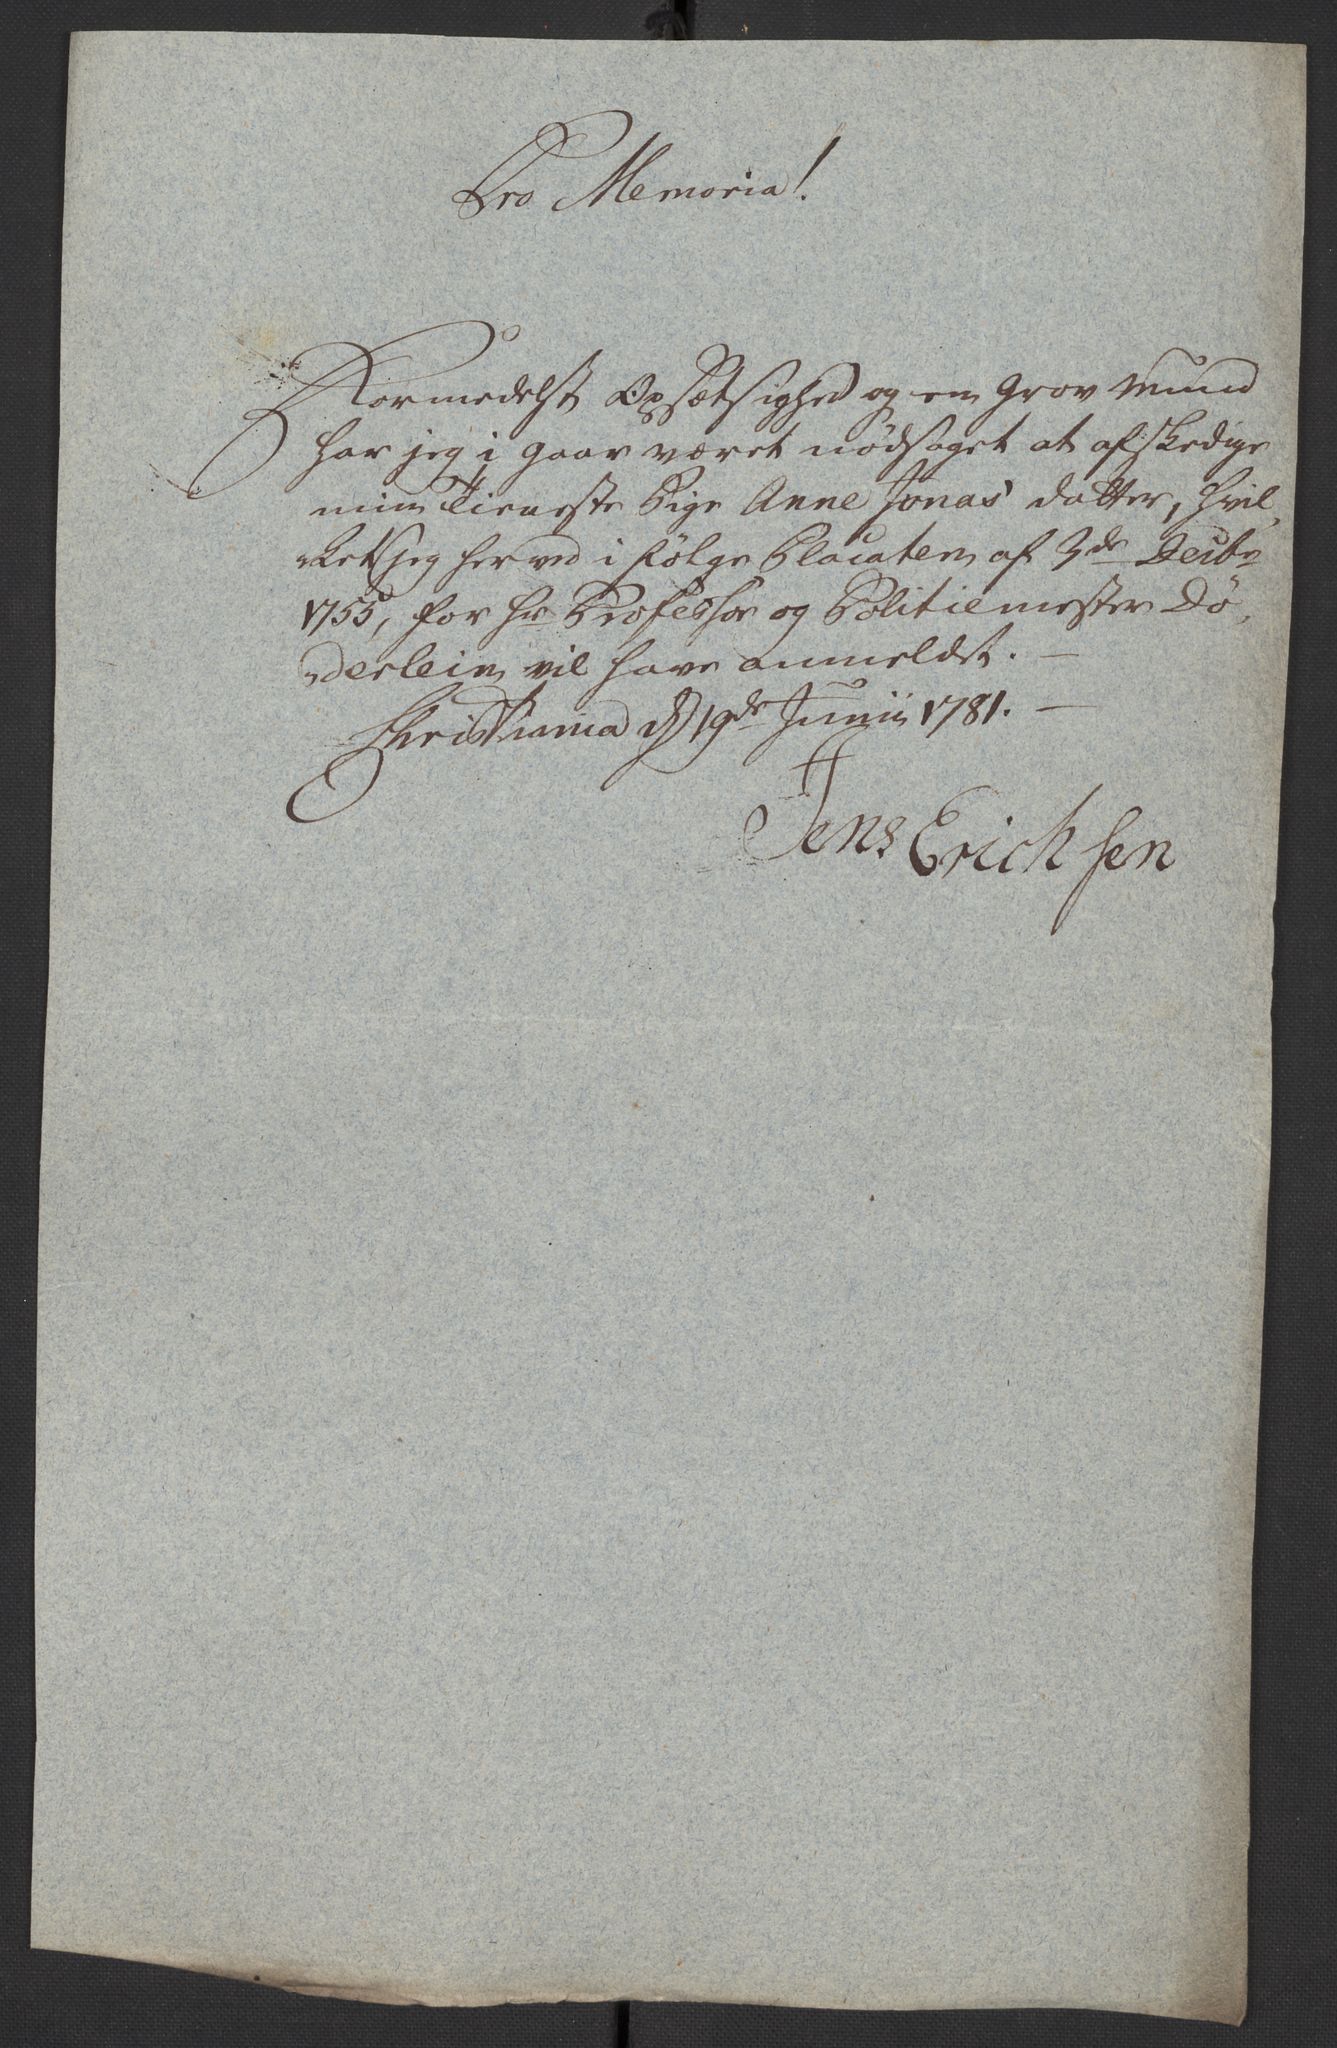 Pro Memoria!
Formedelst Opsætsighed og en Grov Mund
har jeg i gaar været nødsaget at afskedige
min Tieneste Pige Anne Jonas' datter, hvil,
ket jeg herved i følge Placaten af 3de Decbr
1755, for Hr Professor og Politiemester Dö,
derlein vil have anmeldt. —
Christiania d 19de Junii 1781. —
Jens Erichsen